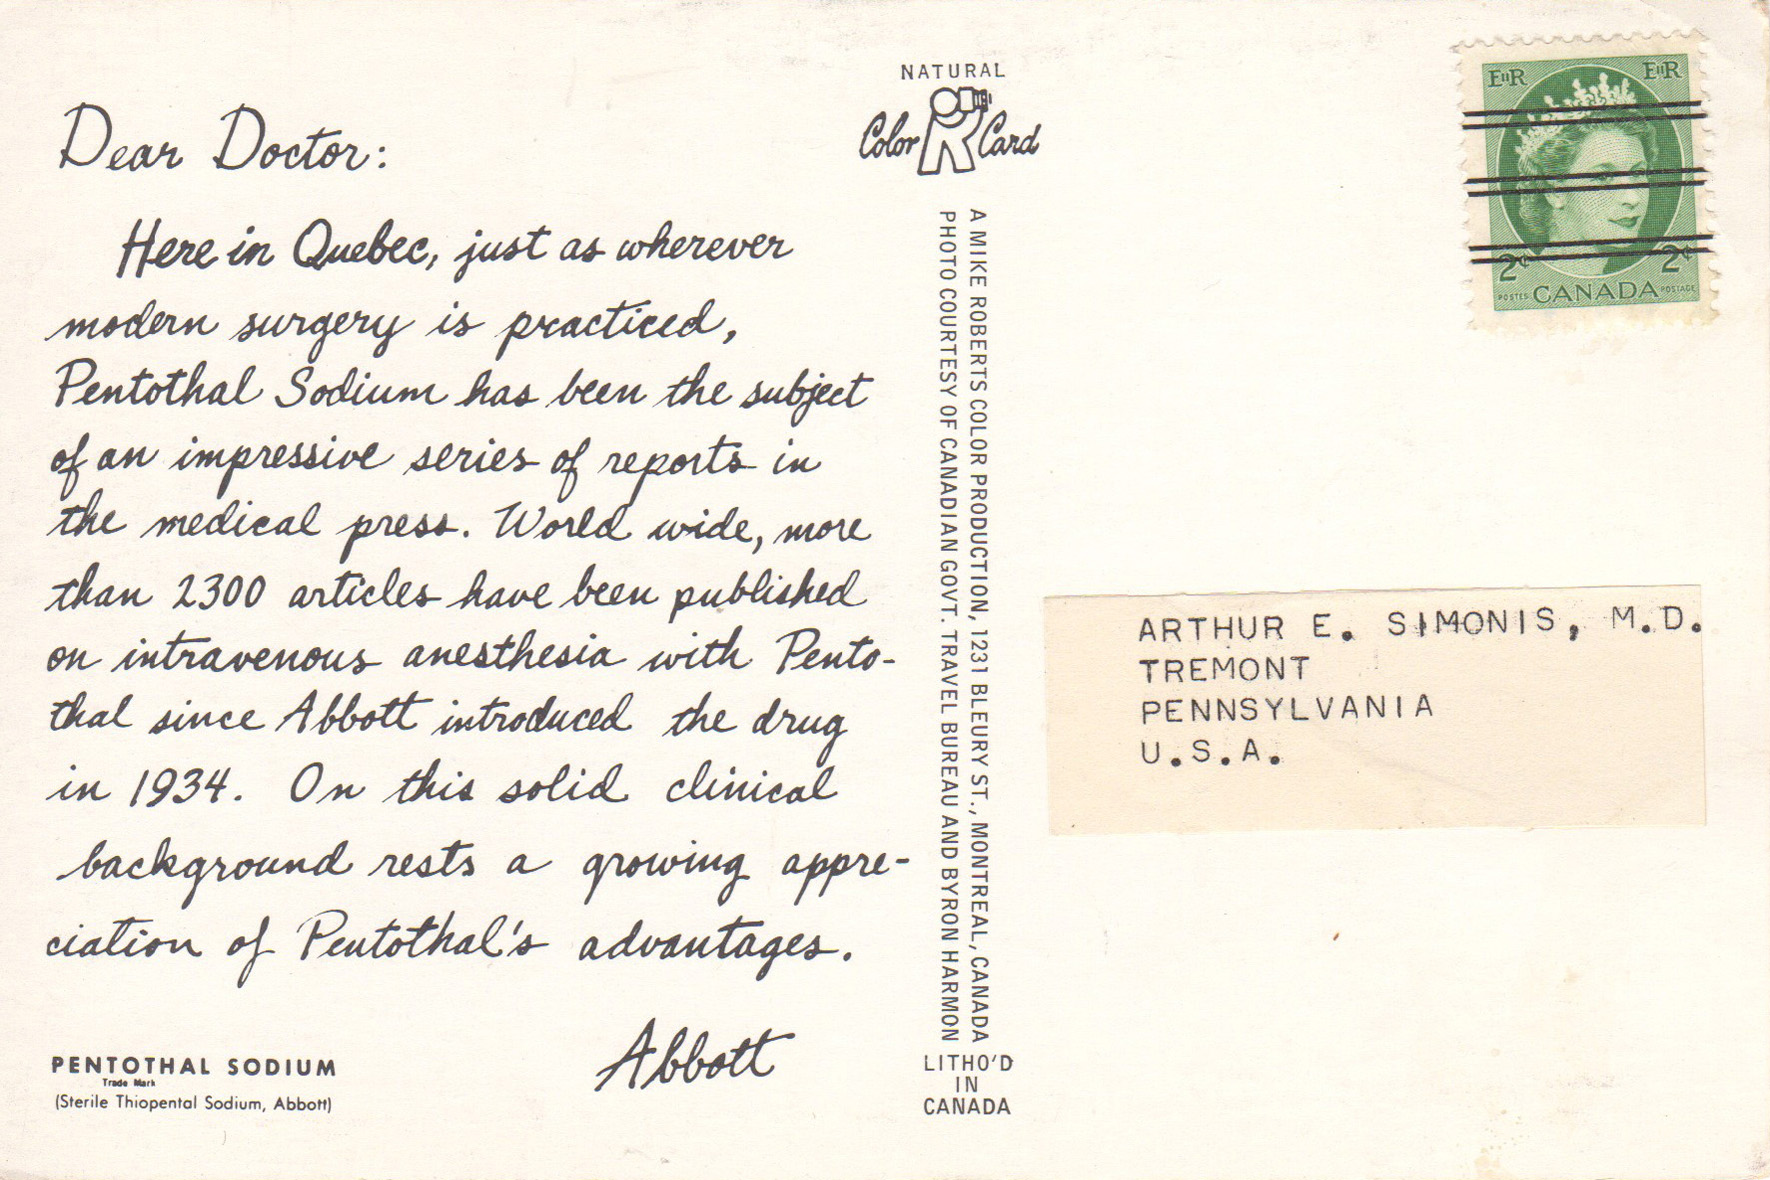 Dear Doctor:
Here in Quebec, just as wherever
modern surgery is practiced,
Pentothal Sodium has been the subject
of an impressive series of reports in
the medical press. World wide, more
than 2300 articles have been published
on intravenous anesthesia with Pento-
thal since Abbott introduced the drug
in 1934. On this solid clinical
background rests a growing appre-
ciation of Pentothal's advantages.
Abbott
PENTOTHAL SODIUM
Trade Mark
(Sterile Thiopental Sodium, Abbott)
NATURAL
Color R Card
A MIKE ROBERTS COLOR PRODUCTION, 1231 BLEURY ST., MONTREAL, CANADA
PHOTO COURTESY OF CANADIAN GOVT. TRAVEL BUREAU AND BYRON HARMON
LITHO'D
IN
CANADA
EIIR EIIR
2¢ 2¢
POSTES CANADA POSTAGE
ARTHUR E. SIMONIS, M.D.
TREMONT
PENNSYLVANIA
U.S.A.